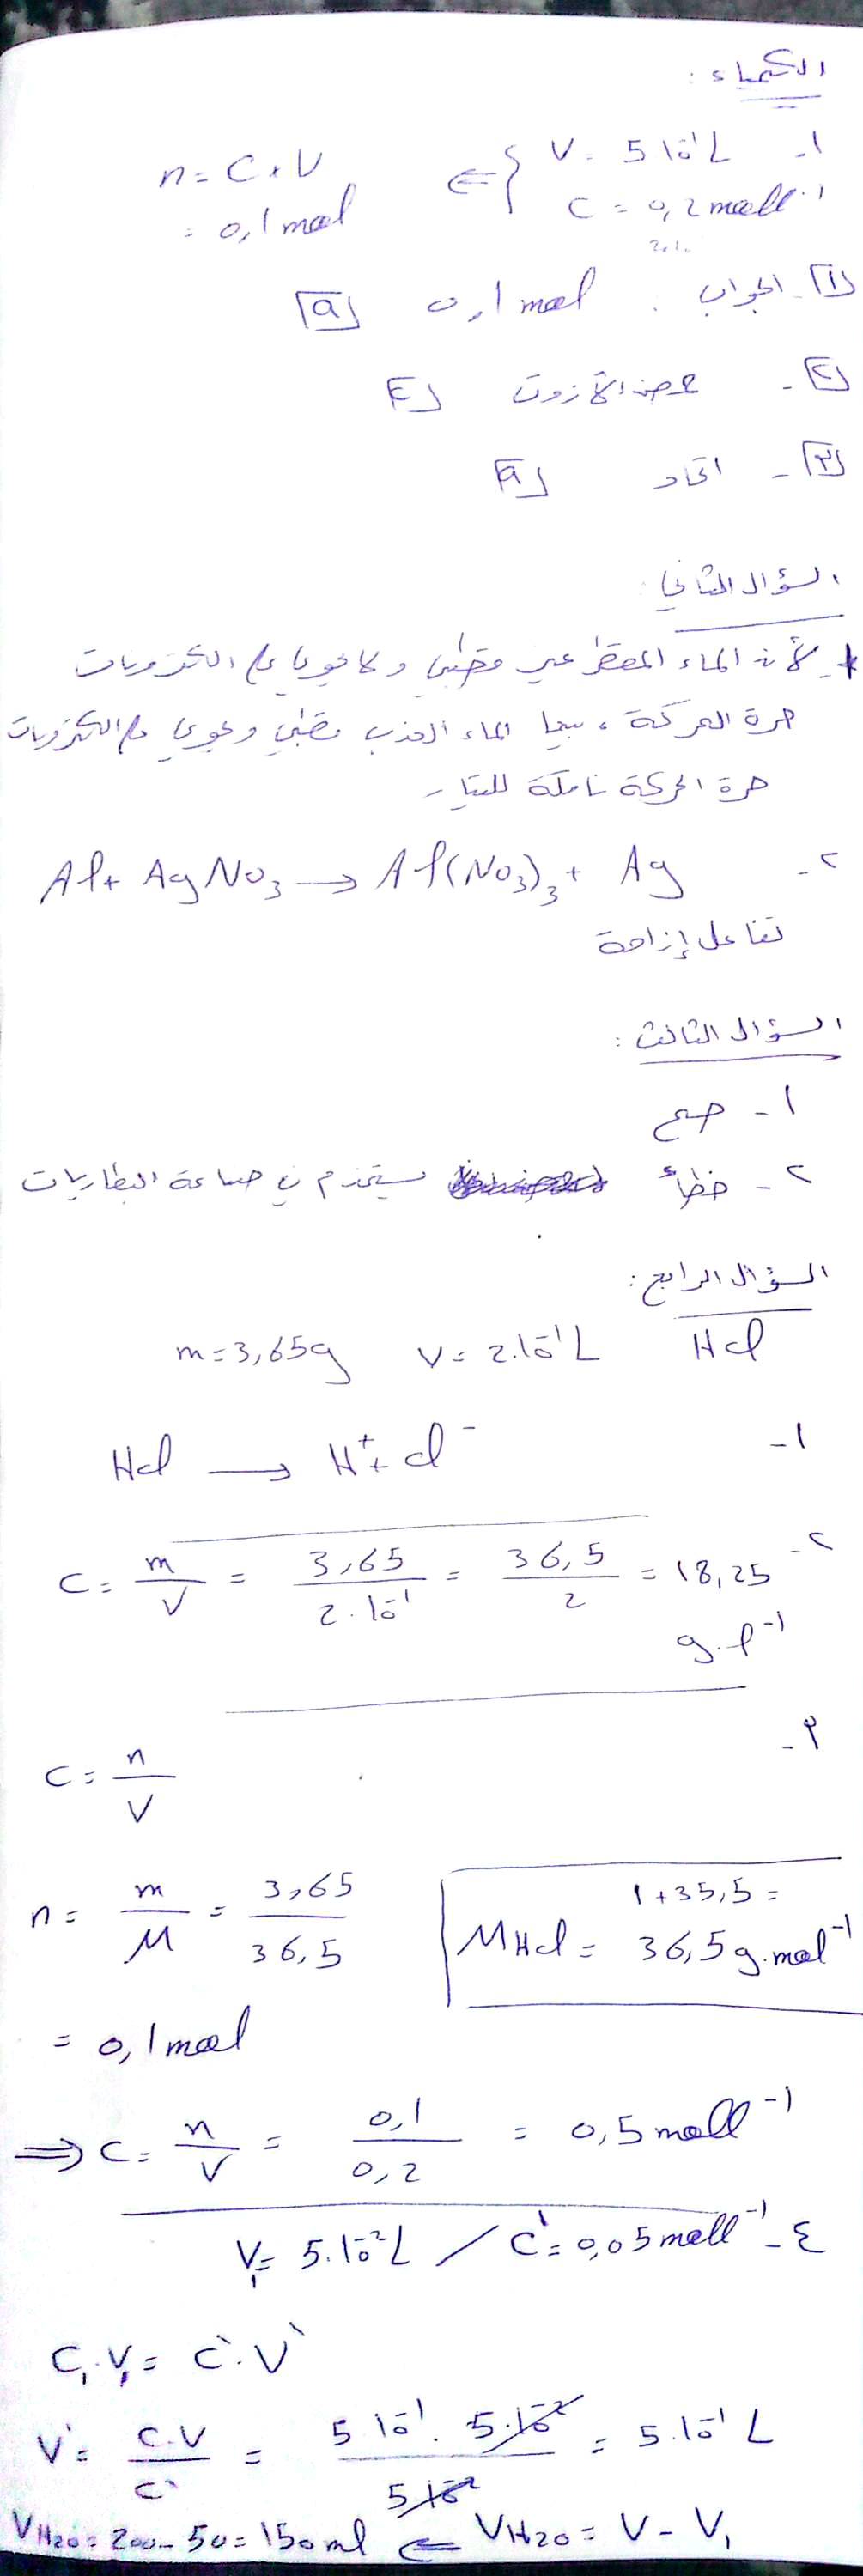 الكيمياء:
1- V = 5 10⁻¹ L
C = 0,2 mol l⁻¹ ⇐ n = C × V
= 0,1 mol
[1] - الجواب. 0,1 mol [a]
[2] - حمض الآزوت
[3] - اتحاد [a]
السؤال الثاني:
* - لأن الماء المقطر غير قطبي ولا يحوي على الكترونات
حرة الحركة، بينما الماء العذب قطبي ويحوي على الكترونات
حرة الحركة ناقلة للتيار
٢- Al + AgNO₃ → Al(NO₃)₃ + Ag
تفاعل إزاحة
السؤال الثالث:
١- صح
٢- خطأ يستخدم في صناعة البطاريات
السؤال الرابع:
HCl V = 2.10⁻¹ L m = 3,65g
١- HCl → H⁺ + Cl⁻
٢- C = m/V = 3,65/2.10⁻¹ = 36,5/2 = 18,25
g.l⁻¹
٣-
C = n/V
n = m/M = 3,65/36,5
1 + 35,5 =
M HCl = 36,5 g.mol⁻¹
= 0,1 mol
⇒ C = n/V = 0,1/0,2 = 0,5 mol l⁻¹
٤- V₁ = 5.10⁻² L / C` = 0,05 mol l⁻¹
C₁.V₁ = C`.V`
V` = C.V/C` = 5 10⁻¹ . 5.10⁻²/5 10⁻² = 5.10⁻¹ L
V H₂O = V - V₁ ⇐ V H₂O = 200 - 50 = 150 ml